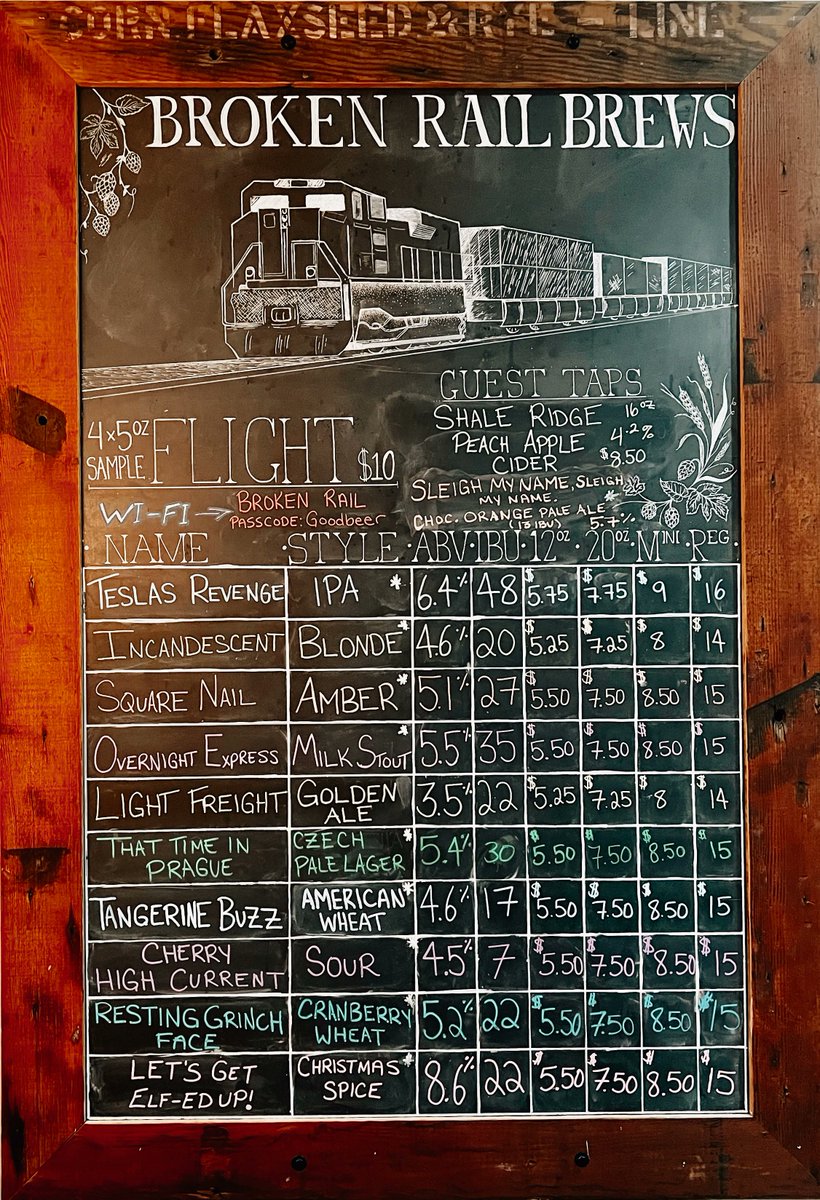 CORN FLAXSEED & RYE - LINE
BROKEN RAIL BREWS
4x5oz
SAMPLE
FLIGHT $10
WI-FI → BROKEN RAIL
PASSCODE: Goodbeer
GUEST TAPS
SHALE RIDGE 16oz
PEACH APPLE 4.2%
CIDER $8.50
SLEIGH MY NAME, SLEIGH
MY NAME. *
CHOC. ORANGE PALE ALE
(13 IBU) 5.7%
·NAME ·STYLE·ABV·IBU·12oz·20oz·MINI·REG·
TESLAS REVENGE IPA * 6.4% 48 $5.75 $7.75 $9 $16
INCANDESCENT BLONDE* 4.6% 20 $5.25 $7.25 $8 $14
SQUARE NAIL AMBER* 5.1% 27 $5.50 $7.50 $8.50 $15
OVERNIGHT EXPRESS MILK STOUT* 5.5% 35 $5.50 $7.50 $8.50 $15
LIGHT FREIGHT GOLDEN ALE 3.5% 22 $5.25 $7.25 $8 $14
THAT TIME IN PRAGUE CZECH PALE LAGER* 5.4% 30 $5.50 $7.50 $8.50 $15
TANGERINE BUZZ AMERICAN WHEAT* 4.6% 17 $5.50 $7.50 $8.50 $15
CHERRY HIGH CURRENT SOUR * 4.5% 7 $5.50 $7.50 $8.50 $15
RESTING GRINCH FACE CRANBERRY WHEAT* 5.2% 22 $5.50 $7.50 $8.50 $15
LET'S GET ELF-ED UP! CHRISTMAS SPICE* 8.6% 22 $5.50 $7.50 $8.50 $15